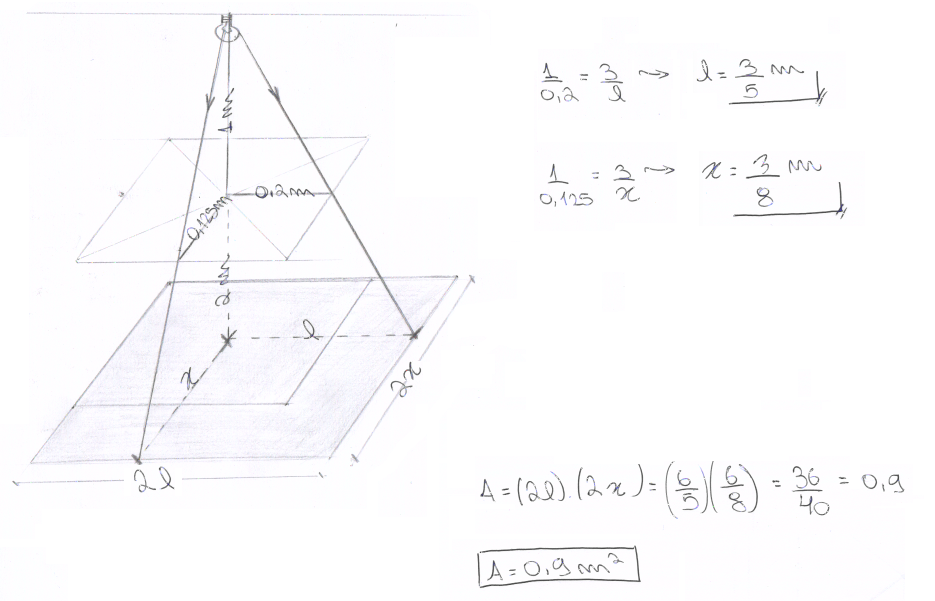 1m
0,2m
0,125m
2m
l
x
2x
2l
1/0,2 = 3/l → l = 3/5 m
1/0,125 = 3/x → x = 3/8 m
A = (2l).(2x) = (6/5)(6/8) = 36/40 = 0,9
A = 0,9 m²